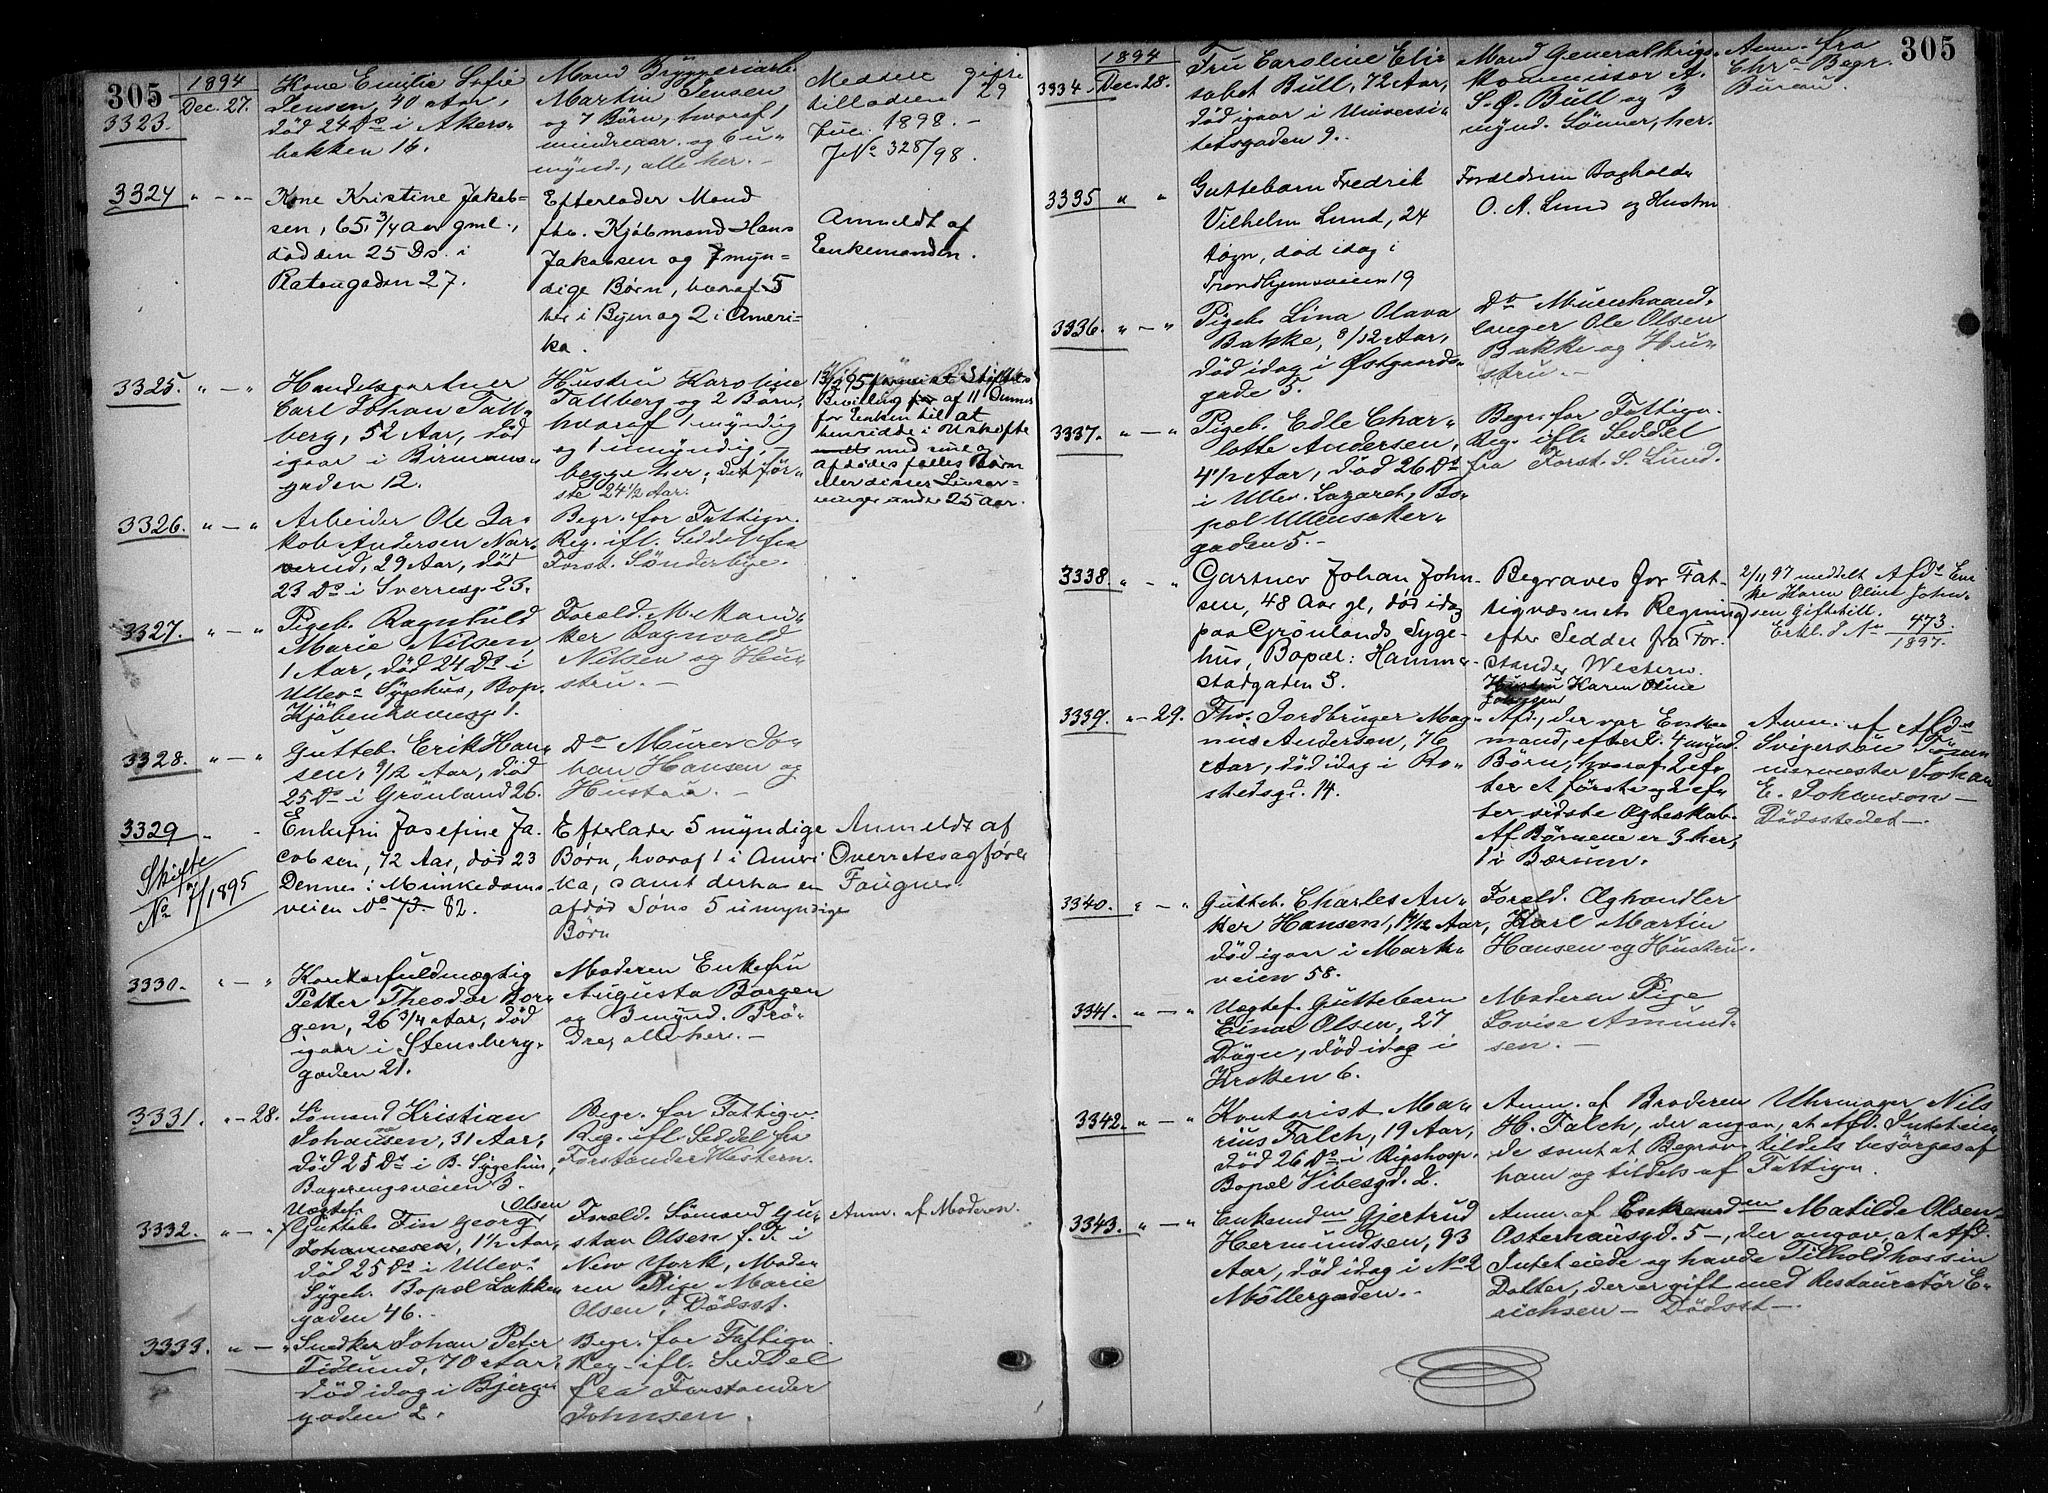 305
1894
3323.
Dec. 27.
Kone Emilie Sofie
Jensen, 40 Aar,
død 24 Ds i Akers-
bakken 16.
Mand Bryggeriarb.
Martin Jensen
og 7 Børn, hvoraf 1
mindreaar. og 6 u-
mynd., alle her. -
Meddelt gifte
tilladelse 29
1898. -
JNo 328/98.
3324
" - "
Kone Kristine Jakob-
sen, 65 3/4 Aar gml.,
død den 25 Ds. i
Ratengaden 27.
Efterlader Mand
fhv. Kjøbmand Hans
Jakobsen og 7 myn-
dige Børn, hvoraf 5
her i Byen og 2 i Ameri-
ka.
Anmeldt af
Enkemanden.
3325.
" - "
Handelsgartner
Carl Johan Tall-
berg, 52 Aar, død
igaar i Birmans-
gaden 12.
Hustru Karoline
Tallberg og 2 Børn,
hvoraf 1 myndig
og 1 umyndig,
begge her; det før-
ste 24 1/2 Aar.
Bevilling for af 11 Dennes
for Enken til at
hensidde i Uskifte
med sine og
afdødes fælles Børn
eller disses Livsar-
vinger under 25 Aar.
3326.
" - "
Arbeider Ole Ja-
kob Andersen Nar-
verud, 29 Aar, død
23 Ds i Sverresg. 23.
Begr. for Fattigv.
Reg. ifl. Seddel fra
Forst. Sönderbye.
3327.
" - "
Pigeb. Ragnhild
Marie Nilsen,
1 Aar, død 24 Ds i
Ullev. Sygehus, Bop.
Kjöbenhavnsg. 1.
Foræld. Mekanik-
ker Ragnvald
Nilsen og Hu-
stru. -
3328.
" - "
Gutteb. Erik Han-
sen, 9/12 Aar, død
25 Ds i Grönland 26.
Do Murer Jo-
han Hansen og
Hustru. -
3329
Skifte
No 7/1895
Enkefru Josefine Ja-
cobsen, 72 Aar, død 23
Dennes i Munkedams-
veien No 73. 82.
Efterlader 5 myndige
Børn, hvoraf 1 i Ameri-
ka, samt derhos en
afdød Søns 5 umyndige
Børn
Anmeldt af
Overretssagfører
Fougner
3330.
" - "
Kontorfuldmægtig
Petter Theodor Bor-
gen, 26 3/4 Aar, død
igaar i Stensberg-
gaden 21.
Moderen Enkefru
Augusta Borgen
og 3 mynd. Brö-
dre, alle her. -
3331.
" - 28.
Sömand Kristian
Johansen, 31 Aar,
död 25 Ds i B. Sygehus,
Bagerengsveien 3.
Begr. for Fattigv.
Reg. ifl. Seddel fra
Forstander Western.
3332.
" - "
Uægtef. Olsen
Gutteb. Fin Georg
Johannesen, 1 1/2 Aar,
död 25 Ds i Ullev.
Sygeh. Bopæl Lakke-
gaden 46. -
Foræld. Sömand Gu-
stav Olsen f. T. i
New York, Mode-
ren Pige Marie
Olsen, Dödsst.
Anm. af Moderen.
3333.
" - "
Snedker Johan Peter
Tidlund, 70 Aar,
död idag i Bjerge-
gaden 2.
Begr. for Fattigv.
Reg. ifl. Seddel
fra Forstander
Johnsen.
305
1894
3334.
Dec. 28.
Fru Caroline Eli-
sabet Bull, 72 Aar,
död igaar i Universi-
tetsgaden 9.
Mand Generalkrigs-
kommissær A.
S. Ø. Bull og 3
mynd. Sönner, her.
Anm. fra
Chra Begr.
Bureau.
3335
" "
Guttebarn Fredrik
Vilhelm Lund, 24
døgn, død idag i
Trondhjemsveien 19
Forældrene Bogholder
O. A. Lund og Hustru
3336.
" - "
Pigeb. Lina Olava
Bakke, 8/12 Aar,
död idag i Østgaards-
gade 5.
Do Murerhaand-
langer Ole Olsen
Bakke og Hu-
stru. -
3337.
" - "
Pigeb. Edle Char-
lotte Andersen,
4 1/2 Aar, död 26 Ds
i Ullev. Lazaret, Bo-
pæl Ullensaker-
gaden 5. -
Begr. for Fattigv.
Reg. ifl. Seddel
fra Forst. S. Lund.
3338.
" - "
Gartner Johan John-
sen, 48 Aar gl, død idag
paa Grønlands Syge-
hus, Bopæl: Hammer-
stadgaden 3.
Begraves for Fat-
tigvæsenets Regning
efter Seddel fra For-
stander Western.
Hustru Karen Oline
Johnsen
2/11 97 meddelt Afds En-
ke Karen Oline John-
sen Giftetill.
Erkl. J No 473
1897.
3339.
" - 29.
Fhv. Jordbruger Mag-
nus Andersen, 76
Aar, död idag i Ro-
stedsgd. 14.
Afd., der var Enke-
mand, efterl. 4 mynd.
Børn, hvoraf 2 ef-
ter et første og 2 ef-
ter sidste Ægteskab.
Af Børnene er 3 her,
1 i Bærum.
Anm. af Afds
Svigersön Töm-
mermester Johan
E. Johanson -
Dödsstedet -.
3340.
" - "
Gutteb. Charles An-
ker Hansen, 14/12 Aar,
död igaar i Mark-
veien 58.
Foræld. Øghandler
Karl Martin
Hansen og Hustru.
3341.
" - "
Uægtef. Guttebarn
Einar Olsen, 27
Dögn, död idag i
Kroken 6.
Moderen Pige
Lovise Amund-
sen. -
3342.
" - "
Kontorist Ma-
rius Falch, 19 Aar,
död 26 Ds i Rigshosp.
Bopæl Vibesgd. 2.
Anm. af Broderen Uhrmager Nils
H. Falch, der angav, at Afd. Intet eie-
de samt at Begrav. tildels besörges af
ham og tildels af Fattigv.
3343.
" - "
Enkemdm Gjertrud
Hermundsen, 93
Aar, död idag i No 2
Möllergaden. -
Anm. af Enkemdm Matilde Olsen
Osterhausgd. 5 -, der angav, at Afd.
Intet eiede og havde Tilhold hos sin
Datter, der er gift med Restauratör E-
richsen - Dödsst -.